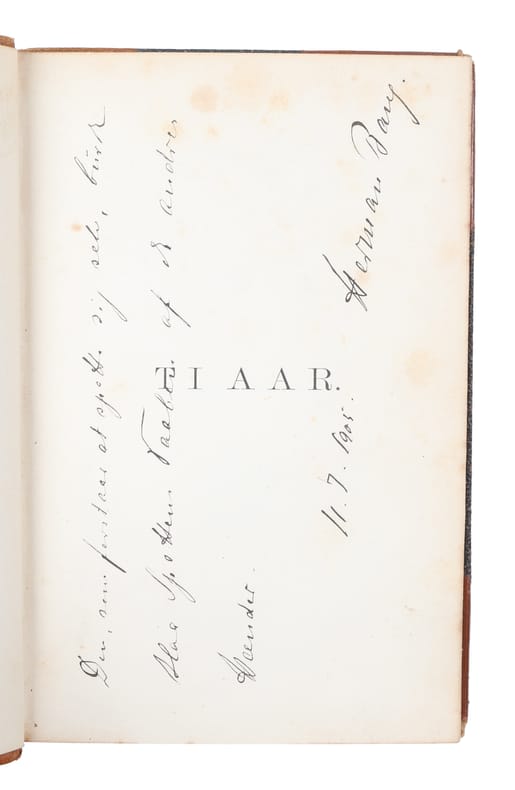 TI AAR.
Den, som forstaar at spotte sig selv, burde
slaa Spottens Vaaben af de andres
Hænder.
11.7.1905.
Herman Bang.